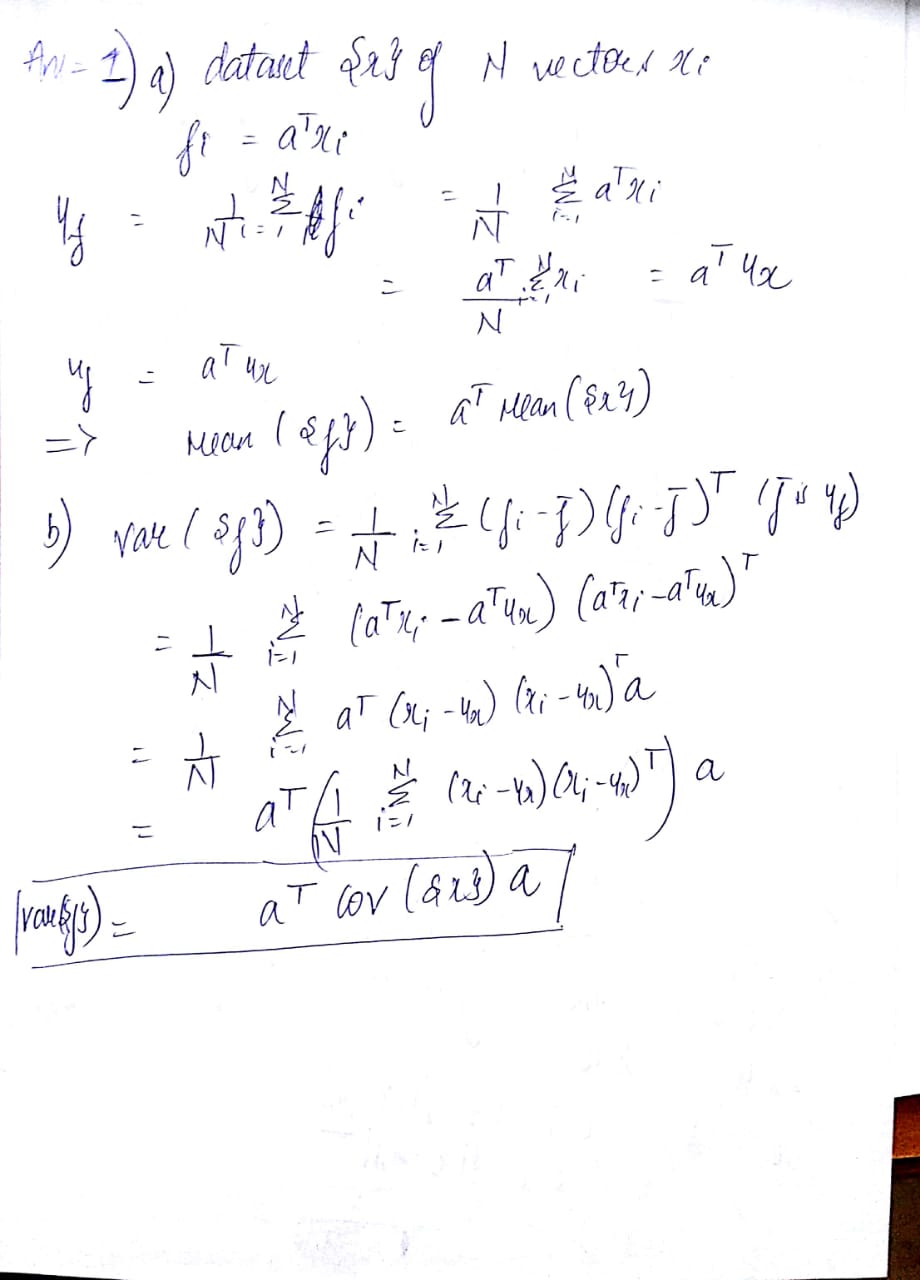 Ans = 1) a) dataset {x} of N vectors xi
fi = aᵀxi
μf = 1/N Σ_{i=1}^{N} fi = 1/N Σ_{i=1}^{N} aᵀxi
= aᵀ/N Σ_{i=1}^{N} xi = aᵀ μx
μf = aᵀ μx
=> Mean ({f}) = aᵀ Mean ({x})
b) var ({f}) = 1/N Σ_{i=1}^{N} (fi - f̄) (fi - f̄)ᵀ (f̄ is μf)
= 1/N Σ_{i=1}^{N} (aᵀxi - aᵀμx) (aᵀxi - aᵀμx)ᵀ
= 1/N Σ_{i=1}^{N} aᵀ (xi - μx) (xi - μx)ᵀ a
= aᵀ (1/N Σ_{i=1}^{N} (xi - μx) (xi - μx)ᵀ) a
var({f}) = aᵀ cov ({x}) a